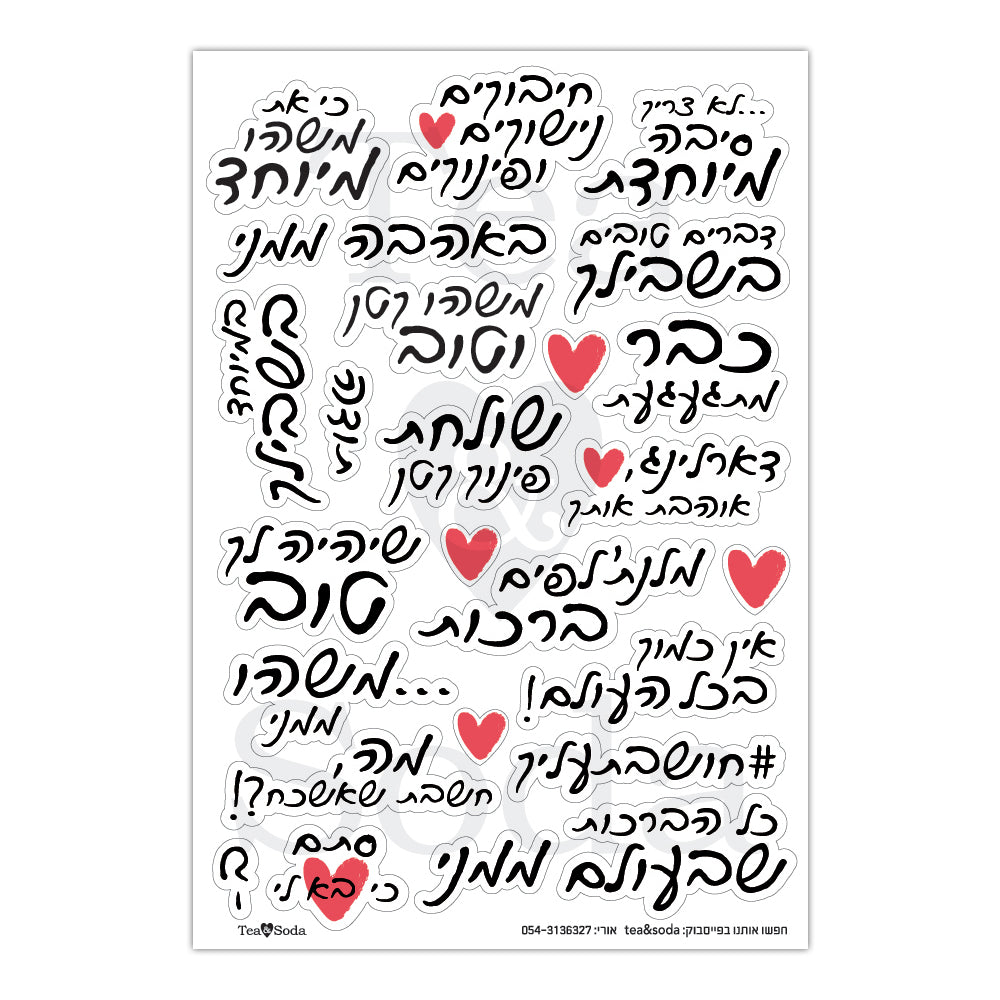 ...לא צריך
סיבה
מיוחדת
חיבוקים
נישוקים
ופינוקים
כי את
משהו
מיוחד
דברים טובים
בשבילך
באהבה
ממני
משהו קטן
וטוב
במיוחד
בשבילך
כבר
מתגעגעת
שולחת
פינוק קטן
דארלינג,
אוהבת אותך
שיהיה לך
טוב
מלנת'לפים
ברכות
אין כמוך
בכל העולם!
משהו...
ממני
#חושבתעליך
מה,
חשבת שאשכח?!
כל הברכות
שבעולם
ממני
סתם
כי בא לי
Tea & Soda
Tea&Soda
חפשו אותנו בפייסבוק: tea&soda אורי: 054-3136327